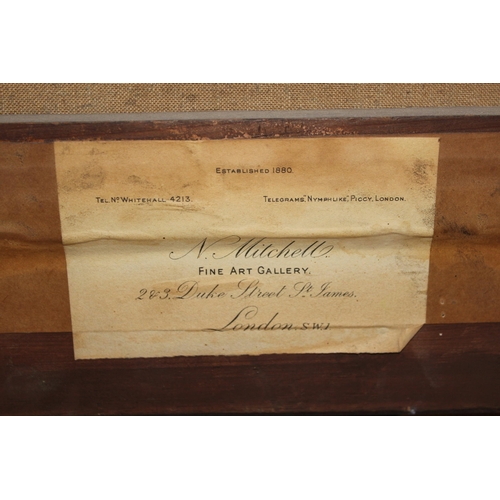 ESTABLISHED 1880.
TEL. No WHITEHALL 4213. TELEGRAMS, "NYMPHLIKE", PICCY, LONDON.
N. Mitchell.
FINE ART GALLERY,
2 & 3, Duke Street St. James.
London. S.W.1